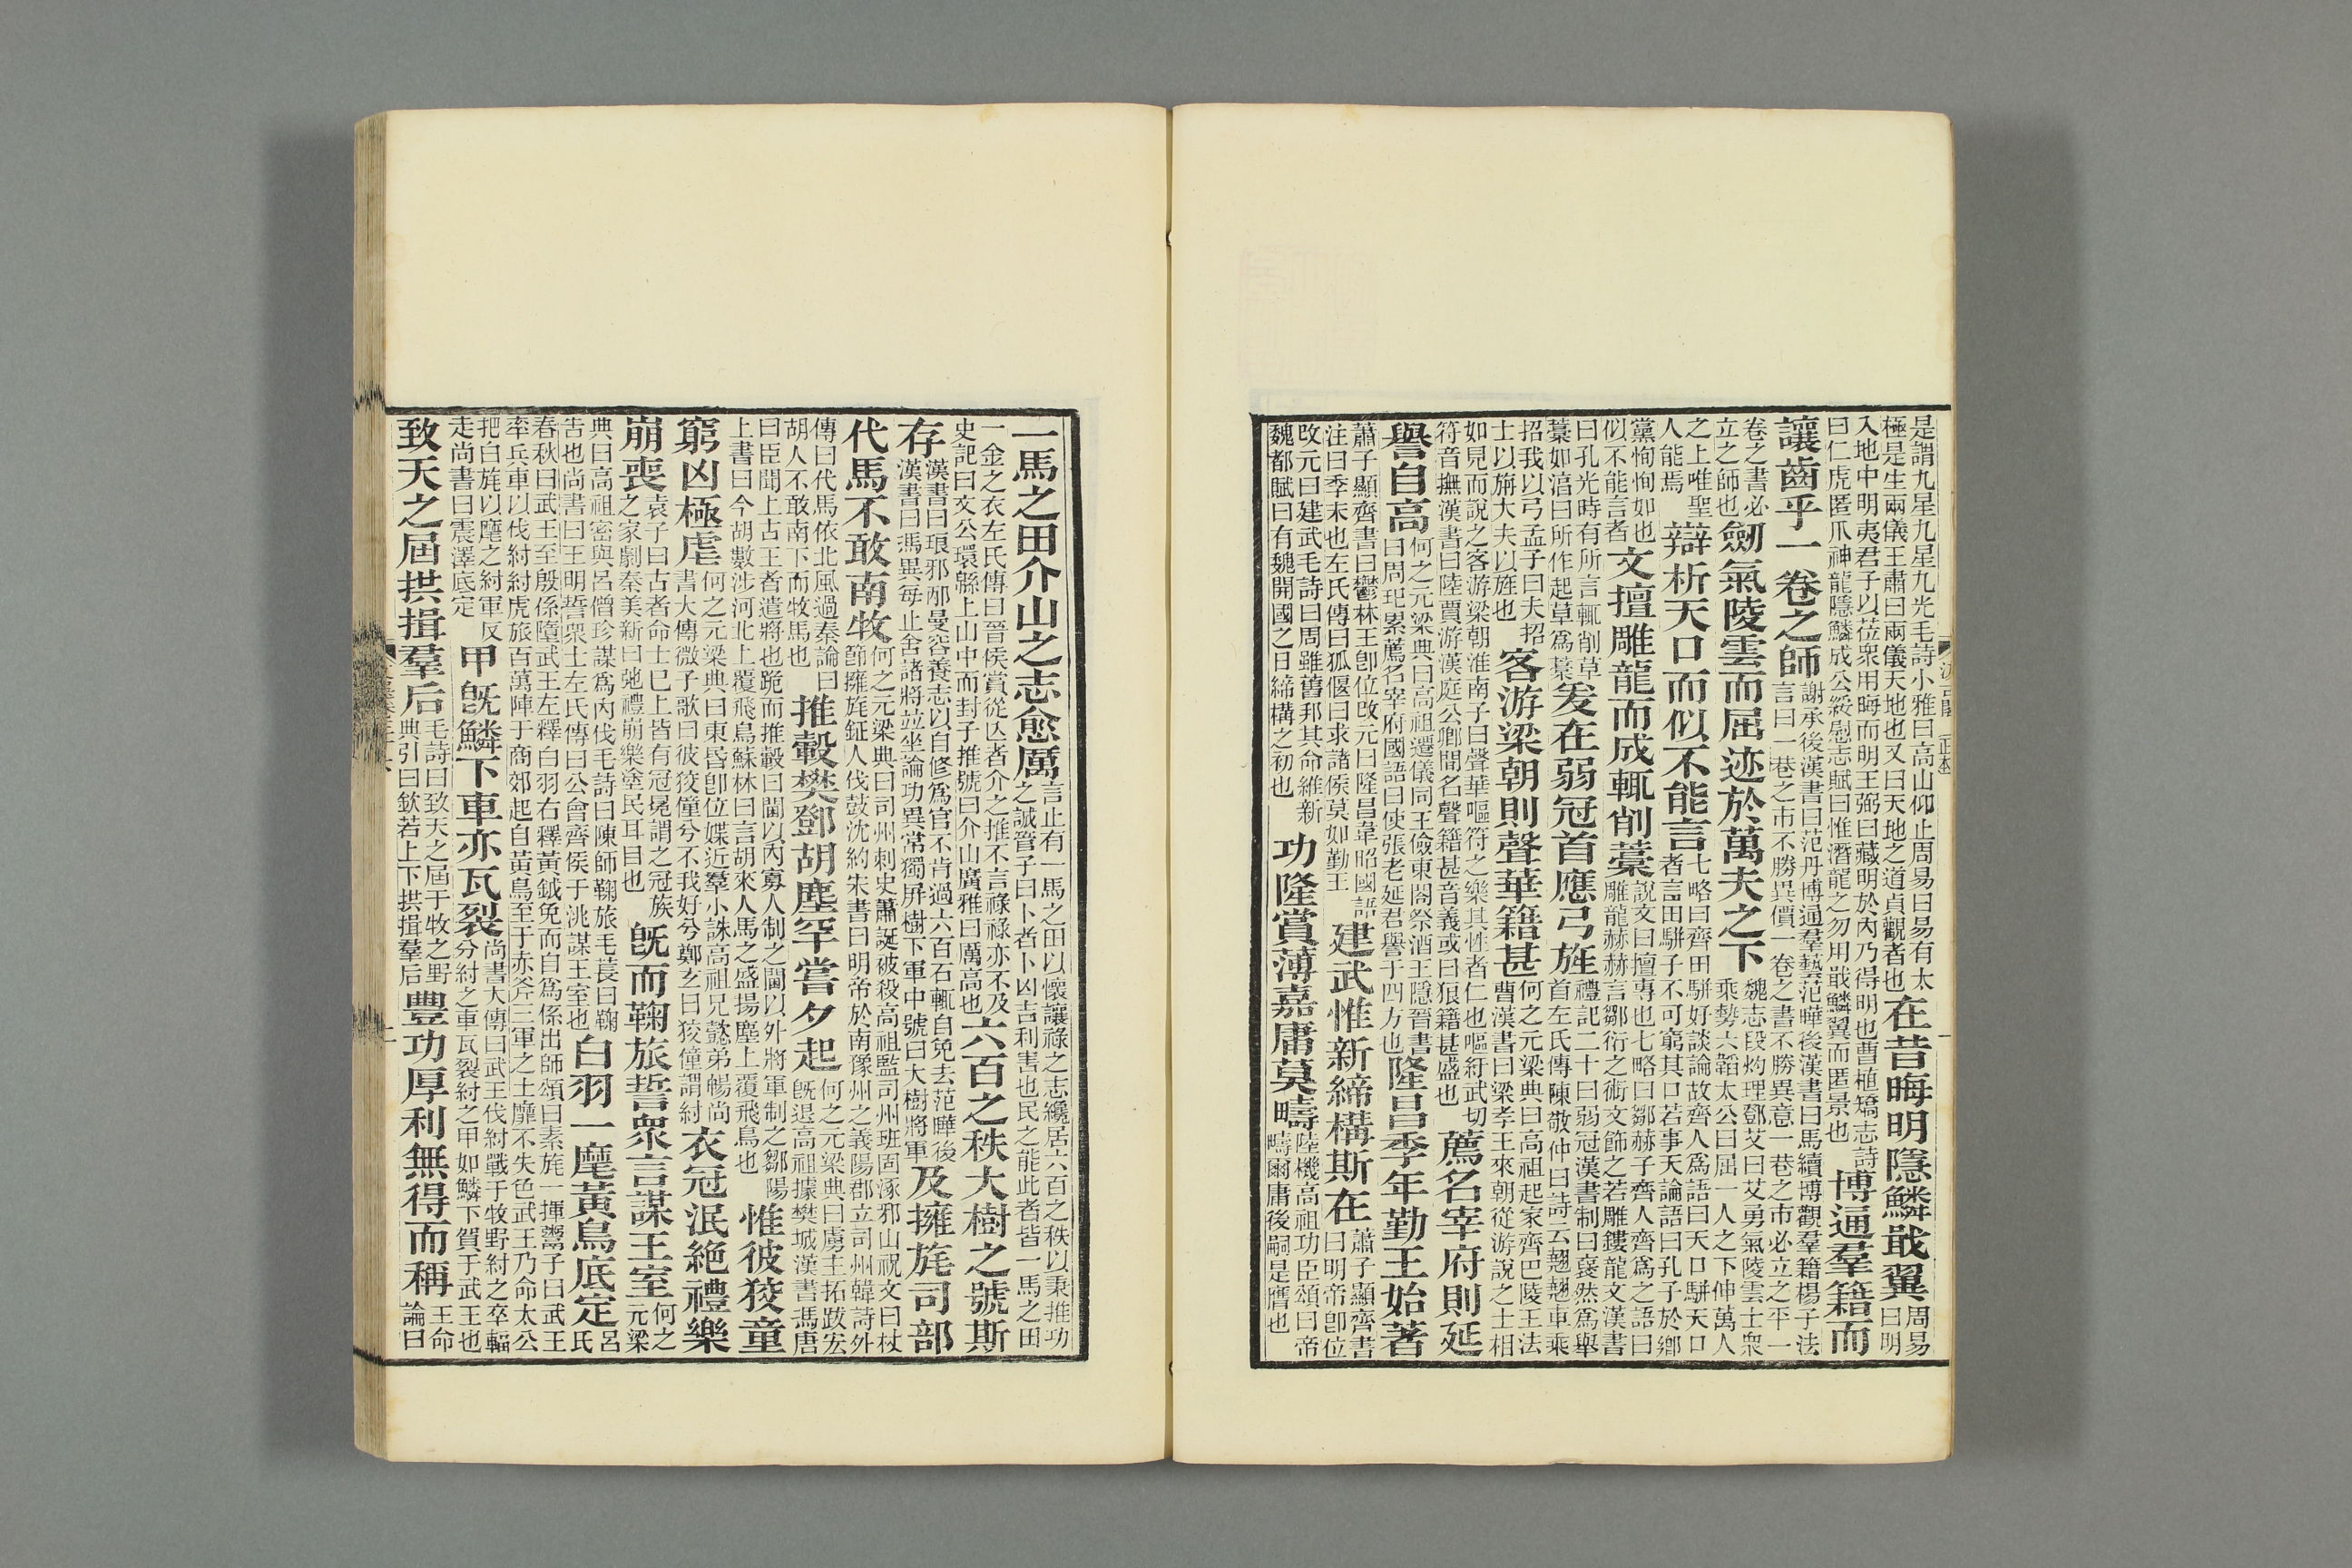 是謂九星九星九光毛詩小雅曰高山仰止周易曰易有太
極是生兩儀王肅曰兩儀天地也又曰天地之道貞觀者也
在昔晦明隱鱗戢翼
周易
曰明
入地中明夷君子以莅衆用晦而明王弼曰藏明於內乃得明也曹植矯志詩
曰仁虎匿爪神龍隱鱗成公綏慰志賦曰惟潛龍之勿用戢鱗翼而匿景也
博通羣籍而
讓齒乎一卷之師
謝承後漢書曰范丹博通羣藝范曄後漢書曰馬續博觀羣籍楊子法
言曰一巷之市不勝異價一卷之書不勝異意一巷之市必立之平一
卷之書必
立之師也
劒氣陵雲而屈迹於萬夫之下
魏志段灼理鄧艾曰艾勇氣陵雲士衆
乘勢六韜太公曰屈一人之下伸萬人
之上唯聖
人能焉
辯析天口而似不能言
七略曰齊田駢好談論故齊人爲語曰天口駢天口
者言田駢子不可窮其口若事天論語曰孔子於鄉
黨恂恂如也
似不能言者
文擅雕龍而成輒削藁
說文曰擅專也七略曰鄒赫子齊人齊爲之語曰
雕龍赫赫言鄒衍之術文飾之若雕鏤龍文漢書
曰孔光時有所言輒削草
藁如湻曰所作起草爲藁
爰在弱冠首應弓旌
禮記二十曰弱冠漢書制曰裦然爲舉
首左氏傳陳敬仲曰詩云翹翹車乘
招我以弓孟子曰夫招
士以旃大夫以旌也
客游梁朝則聲華籍甚
何之元梁典曰高祖起家齊巴陵王法
曹漢書曰梁孝王來朝從游說之士相
如見而說之客游梁朝淮南子曰聲華嘔符之樂其性者仁也嘔紆武切
符音撫漢書曰陸賈游漢庭公卿間名聲籍甚音義或曰狼籍甚盛也
薦名宰府則延
譽自高
何之元梁典曰高祖遷儀同王儉東閤祭酒王隱晉書
曰周玘累薦名宰府國語曰使張老延君譽于四方也
隆昌季年勤王始著
蕭子顯齊書曰鬱林王卽位改元曰隆昌韋昭國語
注曰季末也左氏傳曰狐偃曰求諸侯莫如勤王
建武惟新締構斯在
蕭子顯齊書
曰明帝卽位
改元曰建武毛詩曰周雖舊邦其命維新
魏都賦曰有魏開國之日締構之初也
功隆賞薄嘉庸莫疇
陸機高祖功臣頌曰帝
疇爾庸後嗣是膺也
一馬之田介山之志愈厲
言止有一馬之田以懷讓祿之志纔居六百之秩以秉推功
之誠管子曰卜者卜凶吉利害也民之能此者皆一馬之田
一金之衣左氏傳曰晉侯賞從亾者介之推不言祿祿亦不及
史記曰文公環緜上山中而封子推號曰介山廣雅曰厲高也
六百之秩大樹之號斯
存
漢書曰琅邪邴曼容養志以自修爲官不肯過六百石輒自免去范曄後
漢書曰馮異每止舍諸將並坐論功異常獨屏樹下軍中號曰大樹將軍
及擁旄司部
代馬不敢南牧
何之元梁典曰司州刺史蕭誕被殺高祖監司州班固涿邪山祝文曰杖
節擁旄鉦人伐鼓沈約宋書曰明帝於南豫州之義陽郡立司州韓詩外
傳曰代馬依北風過秦論曰
胡人不敢南下而牧馬也
推轂樊鄧胡塵罕嘗夕起
何之元梁典曰虜主拓跋宏
旣退高祖據樊城漢書馮唐
曰臣聞上古王者遣將也跪而推轂曰閫以內寡人制之閫以外將軍制之鄒陽
上書曰今胡數涉河北上覆飛鳥蘇林曰言胡來人馬之盛揚塵上覆飛鳥也
惟彼狡童
窮凶極虐
何之元梁典曰東昏卽位媟近羣小誅高祖兄懿弟暢尚
書大傳微子歌曰彼狡僮兮不我好兮鄭玄曰狡僮謂紂
衣冠泯絶禮樂
崩喪
袁子曰古者命士已上皆有冠冕謂之冠族
之家劇秦美新曰弛禮崩樂塗民耳目也
旣而鞠旅誓衆言謀王室
何之
元梁
典曰高祖密與呂僧珍謀爲內伐毛詩曰陳師鞠旅毛萇曰鞠
告也尚書曰王明誓衆士左氏傳曰公會齊侯于洮謀王室也
白羽一麾黃鳥底定
呂
氏
春秋曰武王至殷係墮武王左釋白羽右釋黃鉞免而自爲係出師頌曰素旄一揮鬻子曰武王
率兵車以伐紂紂虎旅百萬陣于商郊起自黃鳥至于赤斧三軍之士靡不失色武王乃命太公
把白旄以麾之紂軍反
走尚書曰震澤底定
甲旣鱗下車亦瓦裂
尚書大傳曰武王伐紂戰于牧野紂之卒輻
分紂之車瓦裂紂之甲如鱗下賀于武王也
致天之屆拱揖羣后
毛詩曰致天之屆于牧之野
典引曰欽若上下拱揖羣后
豐功厚利無得而稱
王命
論曰